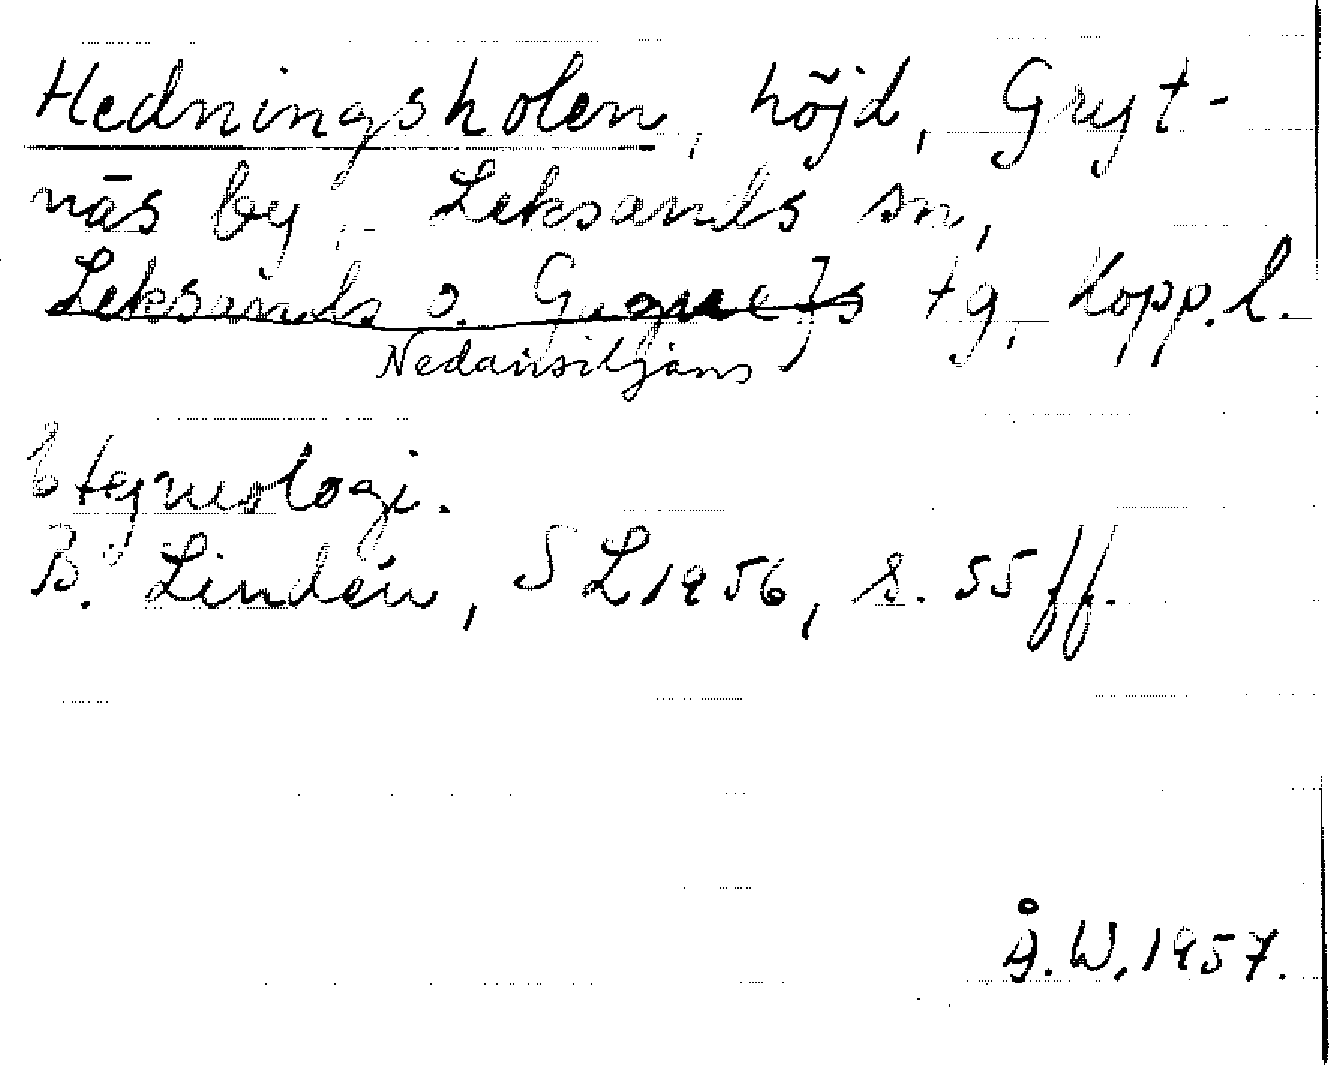 Hedningsholen, höjd, Gryt-
näs by, Leksands sn,
Leksands o. Gagnefs tg, Kopp. l.
Nedansiljans
Etymologi.
B. Lindén, SL 1956, s. 55 ff.
Å. W. 1957.